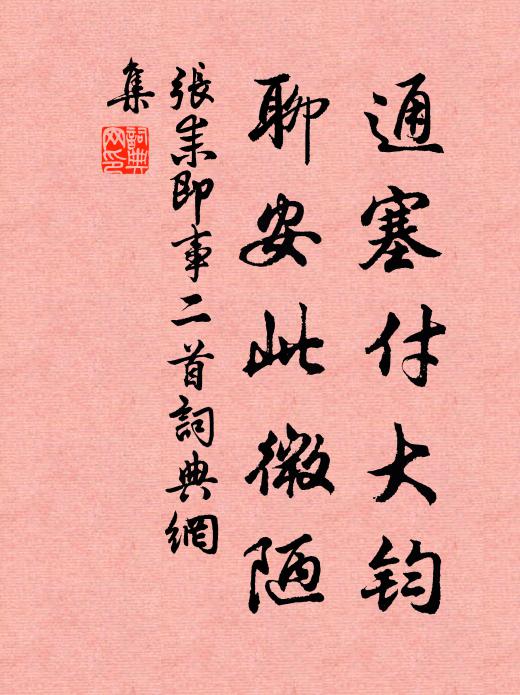 通塞付大钧
聊安此微陋
張耒即事二首詞典網
集
詞典網印